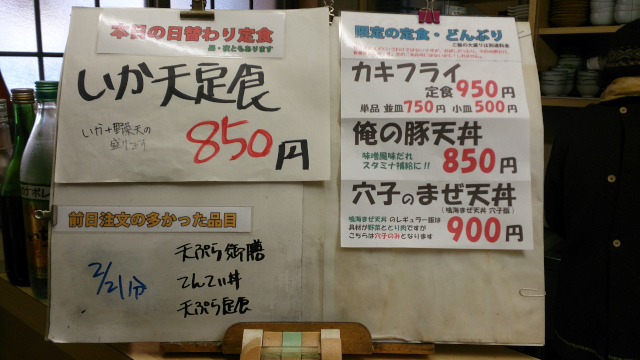 本日の日替わり定食
いか天定食
いか+野菜天の
盛り合わせ
850円
前日注文の多かった品目
2/21分
天ぷら御膳
てんてい丼
天ぷら定食
限定の定食・どんぶり
ご飯の大盛りは別途料金
カキフライ
定食950円
単品 並皿750円 小皿500円
俺の豚天丼
味噌風味だれ
スタミナ補給に!!
850円
穴子のまぜ天丼
(鳴海まぜ天丼 穴子版)
鳴海まぜ天丼のレギュラー版は
具材が野菜ととり肉ですが
こちらは穴子のみとなります
900円